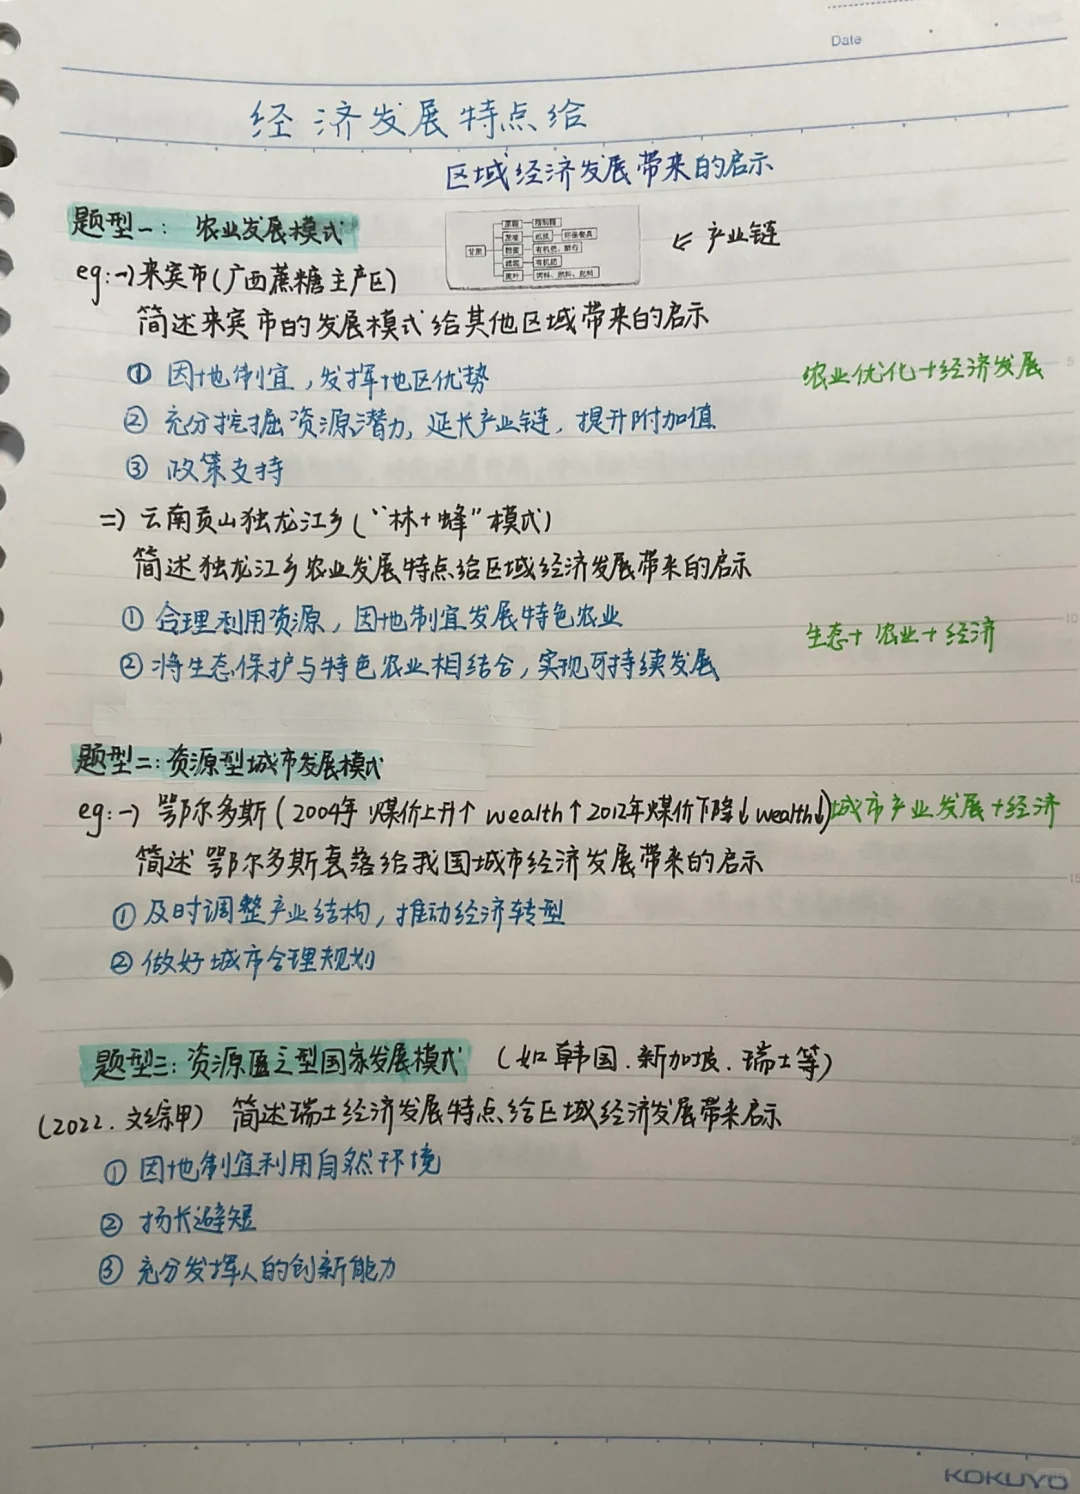 Date
经济发展特点给
区域经济发展带来的启示
题型一：农业发展模式
甘蔗
蔗糖 精制糖
蔗渣 纸浆 环保餐具
有机肥
蔗叶 饲料、燃料、肥料
⇐ 产业链
eg:一)来宾市(广西蔗糖主产区)
简述来宾市的发展模式给其他区域带来的启示
① 因地制宜，发挥地区优势
农业优化+经济发展
② 充分挖掘资源潜力，延长产业链，提升附加值
③ 政策支持
二) 云南贡山独龙江乡(“林+蜂”模式)
简述独龙江乡农业发展特点给区域经济发展带来的启示
① 合理利用资源，因地制宜发展特色农业
生态+农业+经济
② 将生态保护与特色农业相结合，实现可持续发展
题型二：资源型城市发展模式
eg:一) 鄂尔多斯(2004年 煤价上升↑ wealth↑ 2012年煤价下降↓ wealth↓)城市产业发展+经济
简述鄂尔多斯衰落给我国城市经济发展带来的启示
① 及时调整产业结构，推动经济转型
② 做好城市合理规划
题型三：资源匮乏型国家发展模式 (如韩国.新加坡.瑞士等)
(2022.文综甲) 简述瑞士经济发展特点给区域经济发展带来启示
① 因地制宜利用自然环境
② 扬长避短
③ 充分发挥人的创新能力
KOKUYO